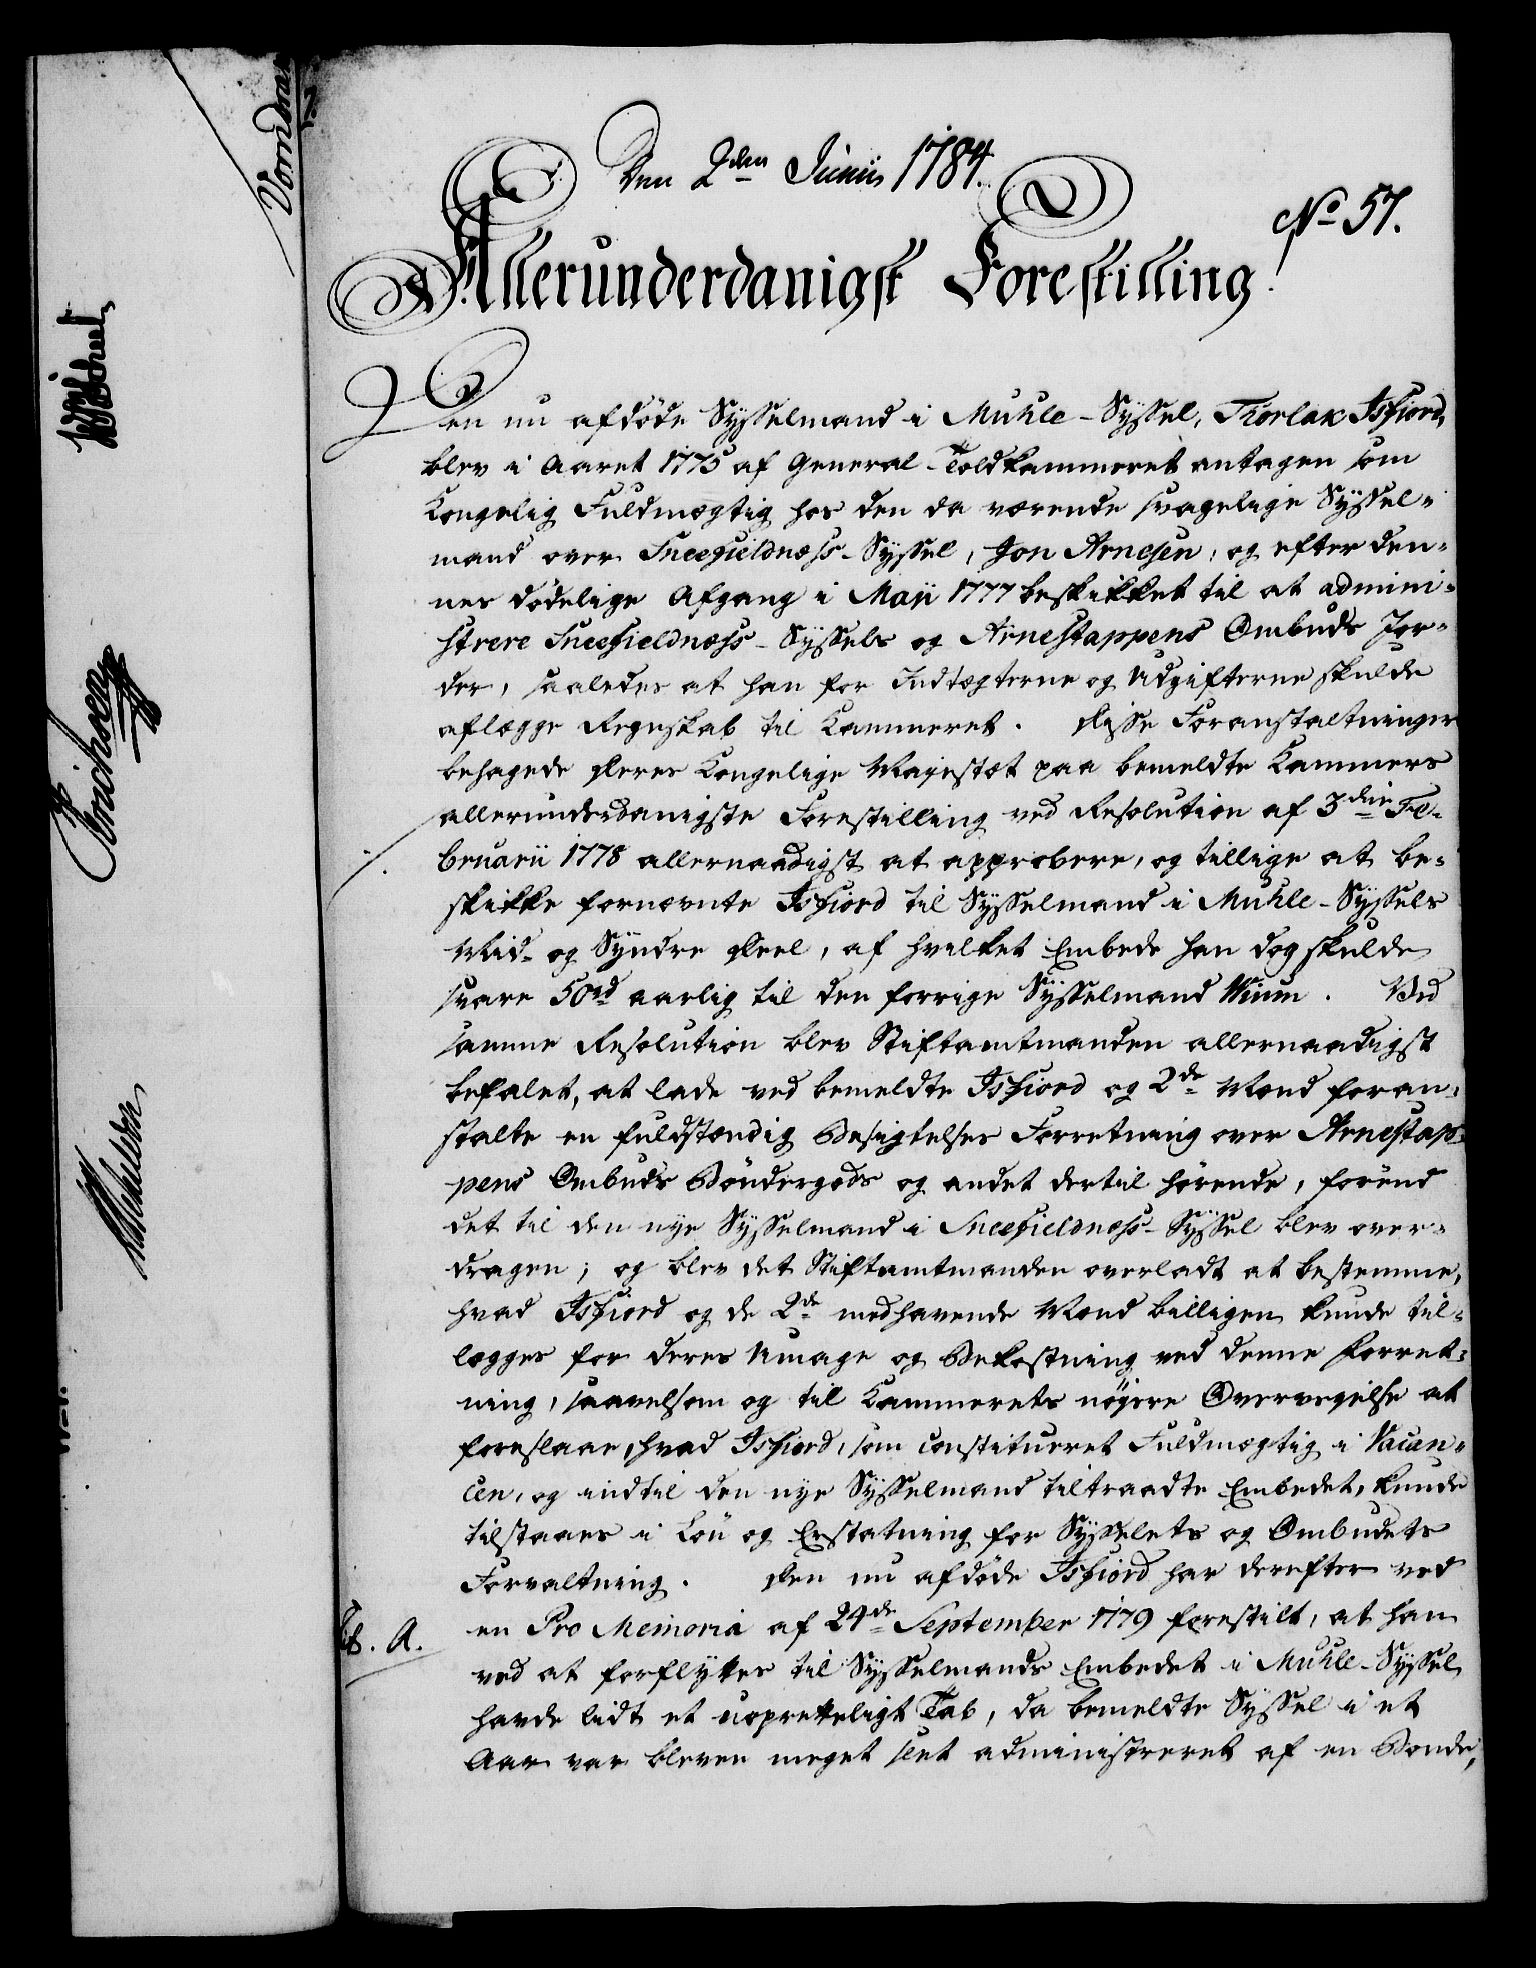 Den 2den Junii 1784.
No 57.
Allerunderdanigst Forestilling!
Den nu afdöde Sysselmand i Muhle-Syssel, Thorlak Isfiord,
blev i Aaret 1775 af General-Toldkammeret antagen som
Kongelig Fuldmægtig hos den da værende svagelige Syssel-
mand over Sneefieldness-Syssel, Jon Arnesen, og efter den-
nes dödelige Afgang i Maji 1777 beskikket til at admini-
strere Sneefieldness-Syssels og Arnestappens Ombuds Jor-
der, saaledes at han for Indtægterne og Udgifterne skulde
aflægge Regnskab til Kammeret. Disse Foranstaltninger
behagede Deres Kongelige Majestæt paa bemeldte Kammers
allerunderdanigste Forestilling ved Resolution af 3die Fe-
bruarii 1778 allernaadigst at approbere, og tillige at be-
skikke fornævnte Isfiord til Sysselmand i Muhle-Syssels
Mid- og Syndre Deel, af hvilket Embede han dog skulde
svare 50rd aarlig til den forrige Sysselmand Wium. Ved
samme Resolution blev Stiftamtmanden allernaadigst
befalet, at lade ved bemeldte Isfiord og 2de Mænd foran-
stalte en fuldstændig Besigtelses Forretning over Arnestap-
pens Ombuds Böndergods og andet dertil hörende, forend
det til den nye Sysselmand i Sneefieldness-Syssel blev over-
dragen; og blev det Stiftamtmanden overladt at bestemme,
hvad Isfiord og de 2de medhavende Mænd billigen kunde til-
lægges for deres Umage og Bekostning ved denne Forret-
ning, saavelsom og til Kammerets nöjere Overvejelse at
foreslaae, hvad Isfiord, som constitueret Fuldmægtig i Vacan-
cen, og indtil den nye Sysselmand tiltraadte Embedet, kunde
tilstaaes i Lön og Erstatning for Sysselets og Ombudets
Forvaltning. Den nu afdöde Isfiord har derefter ved
Lit. A. en Pro Memoria af 24de September 1779 forestilt, at han
ved at forflyttes til Sysselmands Embedet i Muhle-Syssel
havde lidt et uopretteligt Tab, da bemeldte Syssel i et
Aar var bleven meget slet administreret af en Bonde,